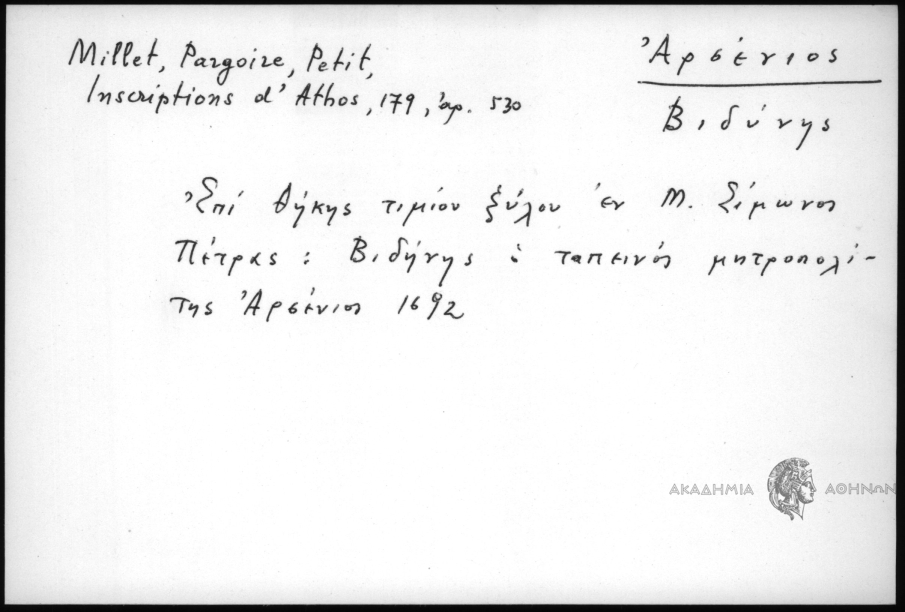 Millet, Pargoire, Petit,
Inscriptions d' Athos, 179, ἀρ. 530
Ἀρσένιος
Βιδύνης
Ἐπί θήκης τιμίου ξύλου ἐν Μ. Σίμωνος
Πέτρας : Βιδήνης ὁ ταπεινός μητροπολί-
της Ἀρσένιος 1692
ΑΚΑΔΗΜΙΑ ΑΘΗΝΩΝ